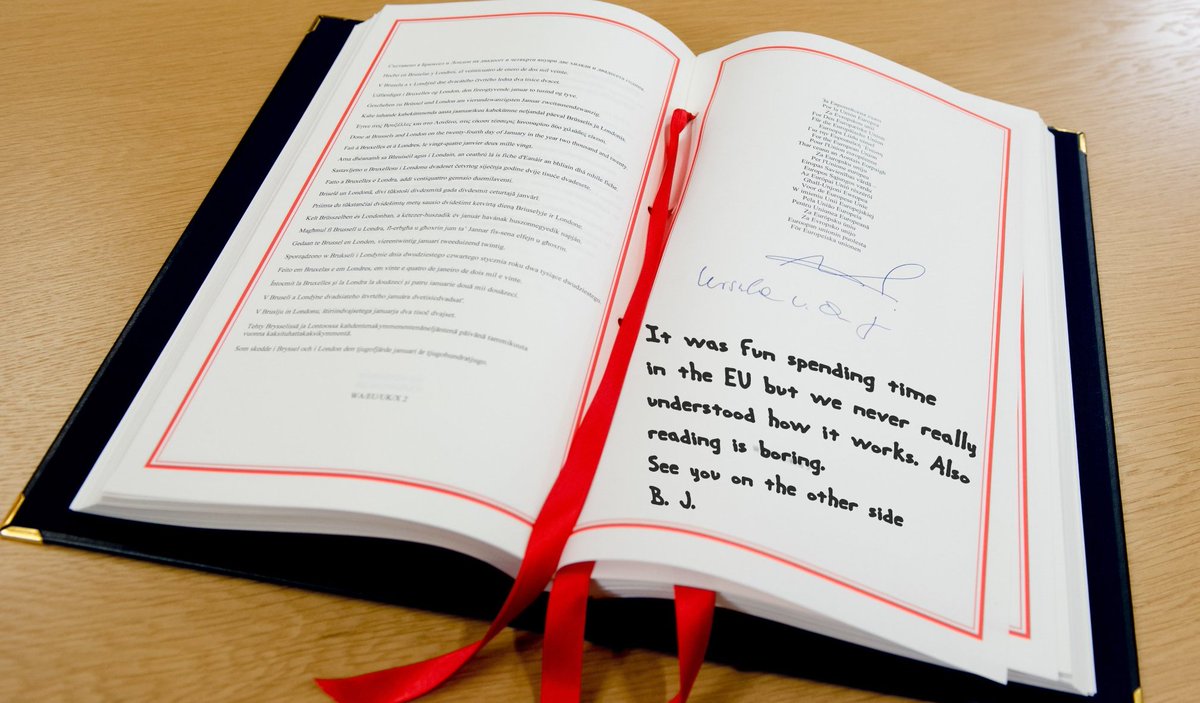 Съставено в Брюксел и Лондон на двадесет и четвърти януари две хиляди и двадесета година.
Hecho en Bruselas y Londres, el veinticuatro de enero de dos mil veinte.
V Bruselu a v Londýně dne dvacátého čtvrtého ledna dva tisíce dvacet.
Udfærdiget i Bruxelles og London, den fireogtyvende januar to tusind og tyve.
Geschehen zu Brüssel und London am vierundzwanzigsten Januar zweitausendzwanzig.
Kahe tuhande kahekümnenda aasta jaanuarikuu kahekümne neljandal päeval Brüsselis ja Londonis.
Έγινε στις Βρυξέλλες και στο Λονδίνο, στις είκοσι τέσσερις Ιανουαρίου δύο χιλιάδες είκοσι.
Done at Brussels and London on the twenty-fourth day of January in the year two thousand and twenty
Fait à Bruxelles et à Londres, le vingt-quatre janvier deux mille vingt.
Arna dhéanamh sa Bhruiséil agus i Londain, an ceathrú lá is fiche d'Eanáir an bhliain dhá mhíle fiche.
Sastavljeno u Bruxellesu i Londonu dvadeset četvrtog siječnja godine dvije tisuće dvadesete.
Fatto a Bruxelles e Londra, addì ventiquattro gennaio duemilaventi.
Briselē un Londonā, divi tūkstoši divdesmitā gada divdesmit ceturtajā janvārī.
Priimta du tūkstančiai dvidešimtų metų sausio dvidešimt ketvirtą dieną Briuselyje ir Londone.
Kelt Brüsszelben és Londonban, a kétezer-huszadik év január havának huszonnegyedik napján.
Magħmul fi Brussell u Londra, fl-erbgħa u għoxrin jum ta' Jannar fis-sena elfejn u għoxrin.
Gedaan te Brussel en Londen, vierentwintig januari tweeduizend twintig.
Sporządzono w Brukseli i Londynie dnia dwudziestego czwartego stycznia roku dwa tysiące dwudziestego.
Feito em Bruxelas e em Londres, em vinte e quatro de janeiro de dois mil e vinte.
Întocmit la Bruxelles și la Londra la douăzeci și patru ianuarie două mii douăzeci.
V Bruseli a Londýne dvadsiateho štvrtého januára dvetisícdvadsať.
V Bruslju in Londonu, štiriindvajsetega januarja dva tisoč dvajset.
Tehty Brysselissä ja Lontoossa kahdentenakymmenentenäneljäntenä päivänä tammikuuta
vuonna kaksituhattakaksikymmentä.
Som skedde i Bryssel och i London den tjugofjärde januari år tjugohundratjugo.
WA/EU/UK/X 2
За Европейския съюз
Por la Unión Europea
Za Evropskou unii
For Den Europæiske Union
Für die Europäische Union
Euroopa Liidu nimel
Για την Ευρωπαϊκή Ένωση
For the European Union
Pour l'Union européenne
Thar ceann an Aontais Eorpaigh
Za Europsku uniju
Per l'Unione europea
Eiropas Savienības vārdā –
Europos Sąjungos vardu
Az Európai Unió részéről
Għall-Unjoni Ewropea
Voor de Europese Unie
W imieniu Unii Europejskiej
Pela União Europeia
Pentru Uniunea Europeană
Za Európsku úniu
Za Evropsko unijo
Euroopan unionin puolesta
För Europeiska unionen
It was fun spending time
in the EU but we never really
understood how it works. Also
reading is boring.
See you on the other side
B. J.